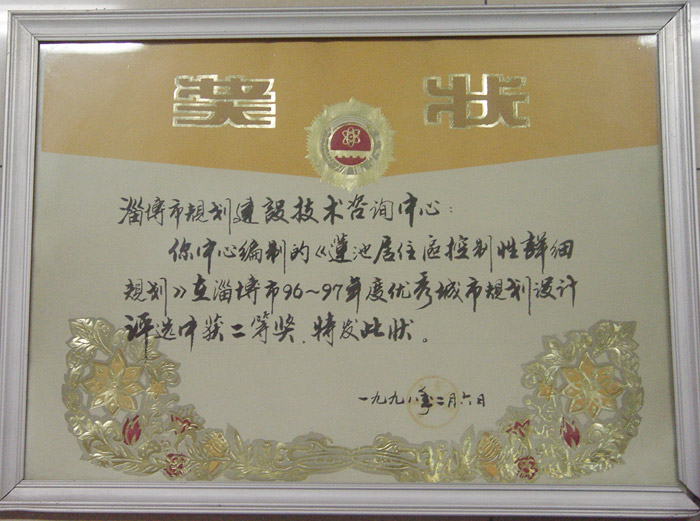 奖状
淄博市规划建設技术咨询中心：
你中心编制的《蓮池居住区控制性詳细
规划》在淄博市96～97年度优秀城市规划设计
评选中获二等奖．特发此状。
一九九八年二月六日